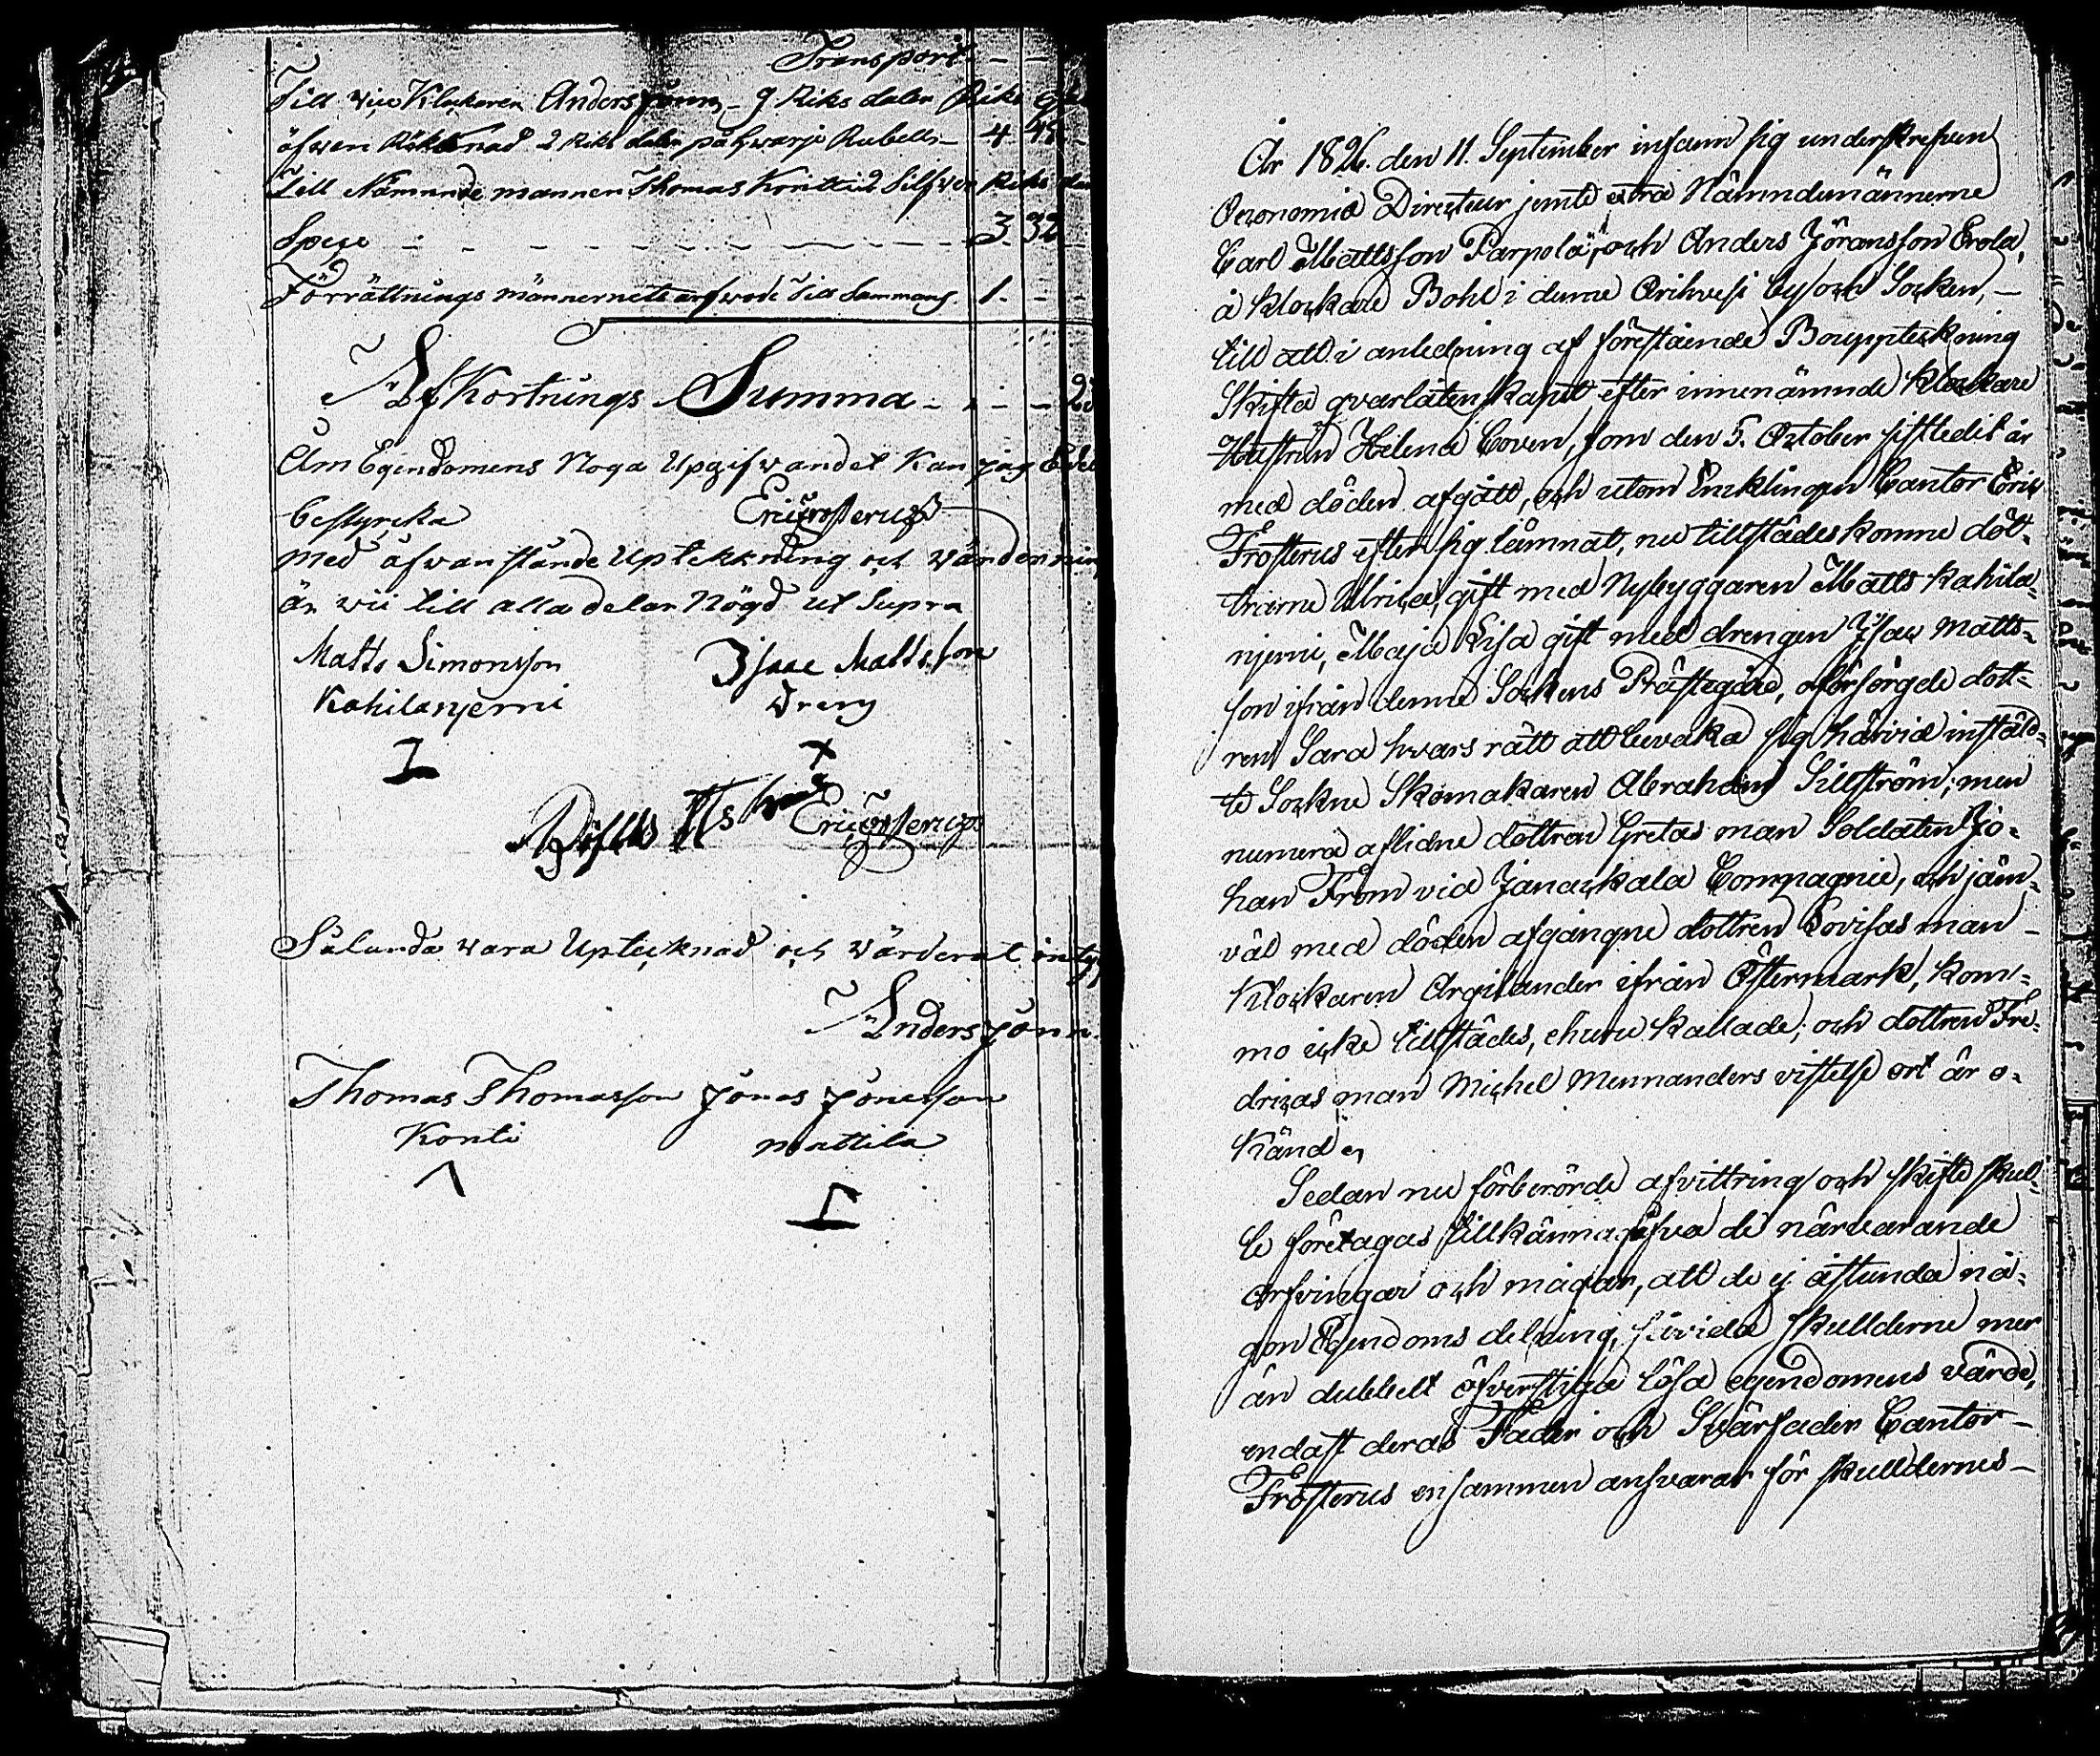 Transport - -
Till vice Klockaren Anders Jönn, 9 Riks daler Riks
öfwer Räknad 2 Riks daler på hwarje Rubell - 4 - 48
Till Nämnde mannen Thomas Kontti 2 Silfwer Riks
Speçe - - - - - - - 3 32
Förrättnings männernets arfwode Till Sammans 1. - -
Afkortnings Summa - - -
Om Egendomens Noga Upgifwandet Kan jag Edel
bestyrcka Eric Frosterus
Med åfvan stånde Uptekkning och Värdernin
är wii till alla delar Nögd ut Supra
Matts Simonsson Isaac Mattsson
Kahilanjemi Dreng
Eric Frosterus
Sålunda wara Uptecknad och Wärderat intyg
Anders Jönn.
Thomas Thomasson Jonas Jonasson
Konti Mattila
År 1826. den 11. September infann sig underskrefven
Oeconomiæ Directeur jemte extra Nämndemännerne
Carl Mattsson Parpola, och Anders Jöransson Erola,
å klockare Bohl i denna Orihvesi by och Socken, -
till att i anledning af förestående Bouppteckning
Skifta qvarlåtenskapet efter innenämnde klockare
Hustrun Helena Coven, som den 5. October sistledit år
med döden afgått, och utom Enklingen Cantor Eric
Frosterus efter sig lämnat, nu tillstädes komne dött-
trarne Ulrica, gift med Nybyggaren Matts Kahila-
njemi, Maja Lisa gift med drengen Isac Matts-
son ifrån denne Sockens Prästegård, oförsörgde dott-
ren Sara hvars rätt att bevaka sig härvid instäld-
te Sockne Skomakaren Abraham Sillström; men
numera aflidne dottren Gretas man Soldaten Jo-
han From vid Janackala Compagnie, och jäm-
väl med döden afgångne dottren Lovisas man -
Klockaren Argilander ifrån Östermark, kom-
mo icke tillstädes, ehuru kallade; och dottren Fre-
dricas man Michel Mennanders vistelse ort är o-
känd,
Sedan nu förberörde afvittring och skifte skul-
le företagas tillkännagifva de närvarande
arfvingar och mågar, att de ej åstunda nå-
gon Egendoms delning, såvida skullderne mer
än dubbelt öfverstiga lösa egendomens värde,
endast deras Fader och Svärfader Cantor -
Frosterus ensammen ansvarar för skulldernes -